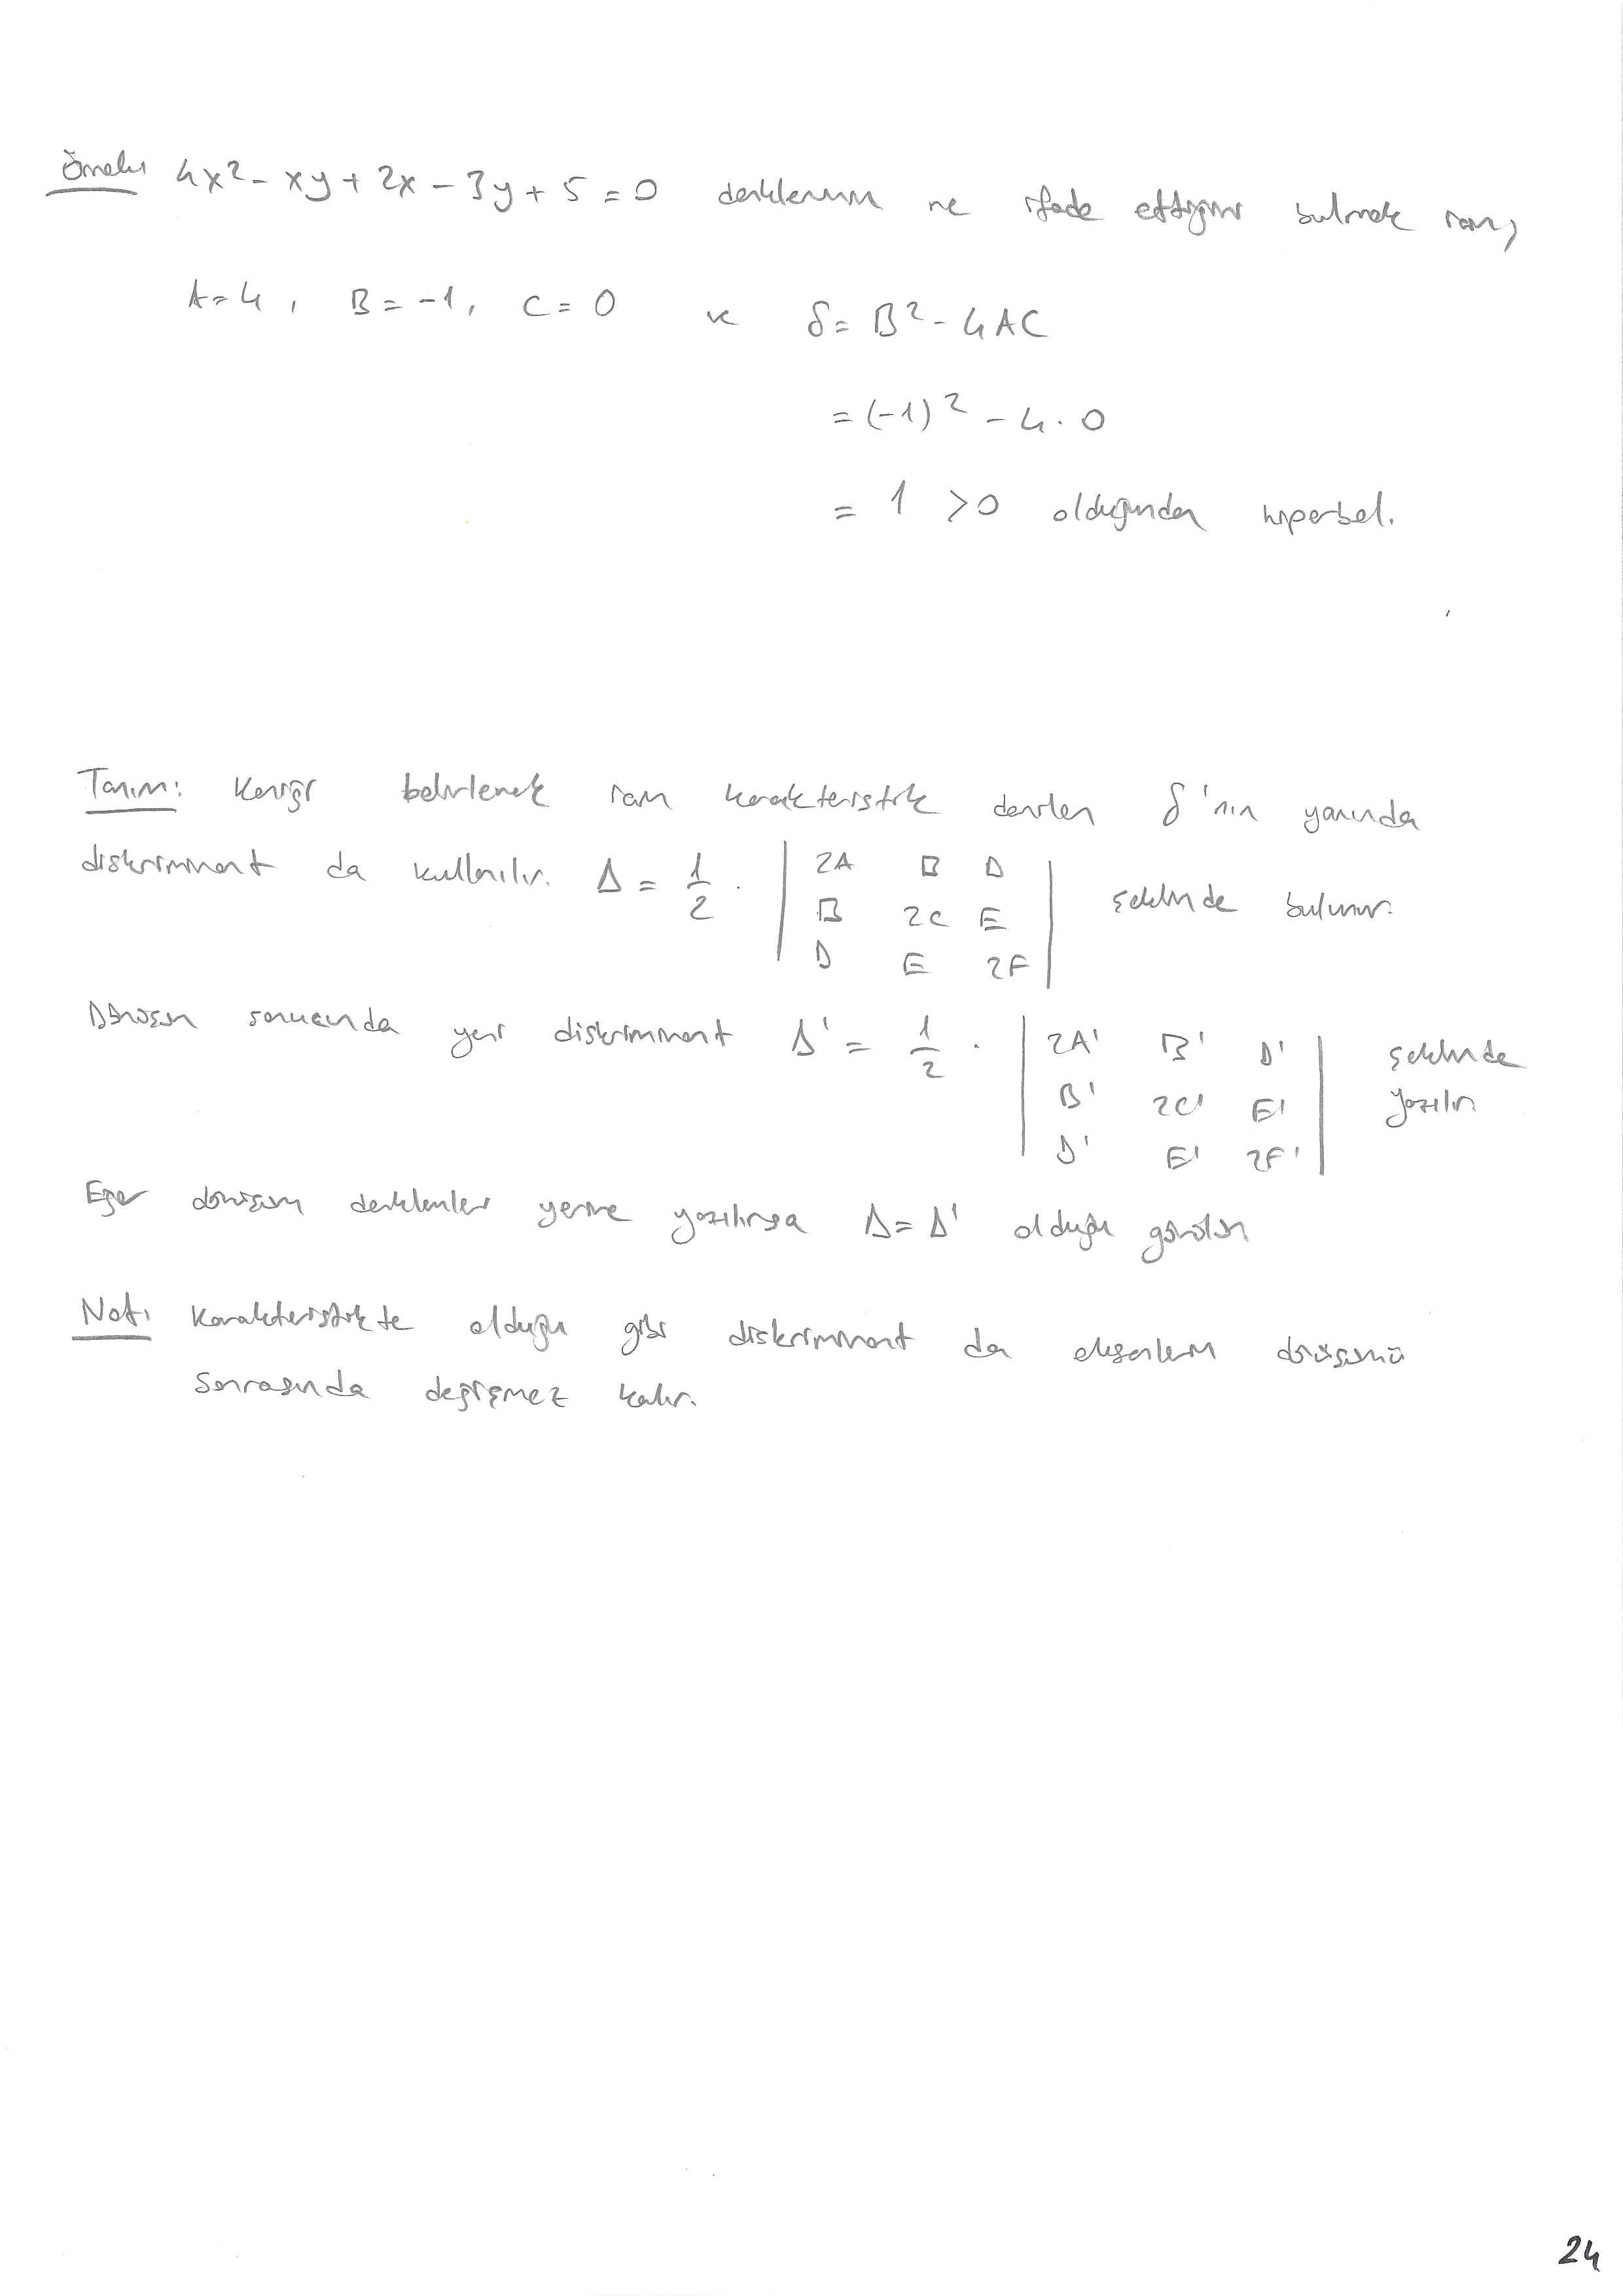 Örnek: 4x² - xy + 2x - 3y + 5 = 0 denkleminin ne ifade ettiğini bulmak için,
A = 4, B = -1, C = 0 ve δ = B² - 4AC
= (-1)² - 4 . 0
= 1 > 0 olduğundan hiperbol.
Tanım: Koniği belirlemek için karakteristik denilen δ'nın yanında
diskriminant da kullanılır. Δ = 1/2 . | 2A B D | şeklinde bulunur.
| B 2C E |
| D E 2F |
Dönüşüm sonucunda yeni diskriminant Δ' = 1/2 . | 2A' B' D' | şeklinde
| B' 2C' E' | yazılır
| D' E' 2F' |
Eğer dönüşüm denklemleri yerine yazılırsa Δ = Δ' olduğu görülür
Not: Karakteristikte olduğu gibi diskriminant da eksenlerin dönüşümü
sonrasında değişmez kalır.
24